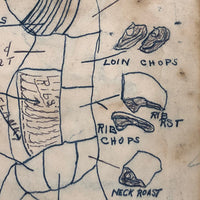 &
RT
LOIN CHOPS
RIBS
RIB RST
RIB
CHOPS
NECK ROAST